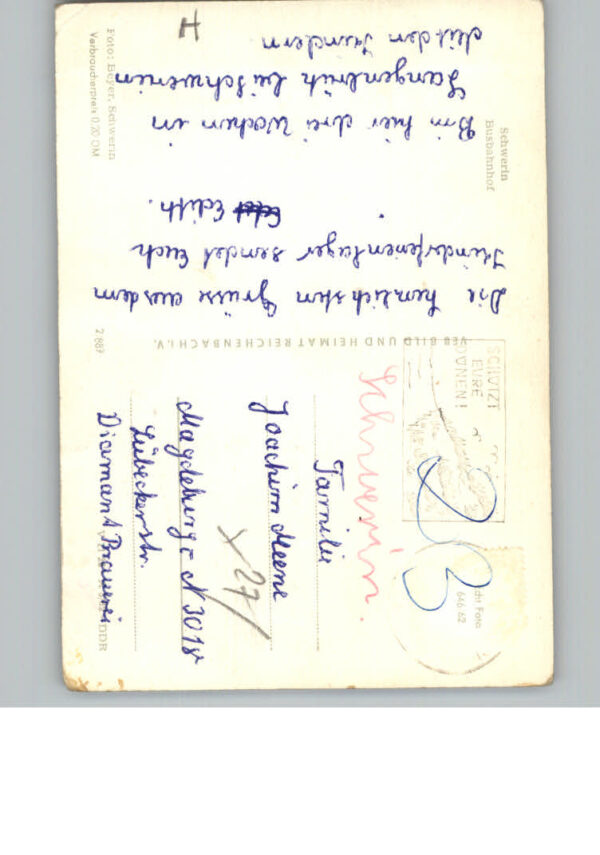 Schwerin
Busbahnhof
Die herzlichsten Grüsse aus dem
Kinderferienlager sendet Euch
Edith.
Bin hier drei Wochen in
bei Schwerin
Mit den Kindern
H
Foto: Beyer, Schwerin
Verbraucherpreis 0,20 DM
VEB BILD UND HEIMAT REICHENBACH I. V.
SCHÜTZT
EURE
Schwerin.
Familie
Joachim Meene
Magdeburg - N 3018
Lübeckerstr.
Diamant Brauerei
DDR
x 27/
Foto
646 62